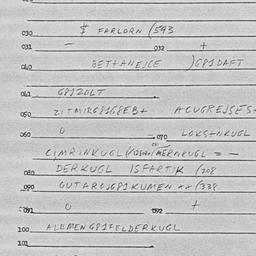 030 $ FARLORN (593
031 – 032 +
040 BETTANEJCE )GPIDAFT
041 GPIZOLT
050 ZITMIRGPIGPEB+ ACUGREJSES+
060 0 070 LOKSTNKUGL
CIMRINKUGL = –
080 DERKUGL ISFARTIK /208
090 GUTAROJGPIKUMEN ** /338
091 0 092 +
100 ALEMENGPIFELDERKUGL
101